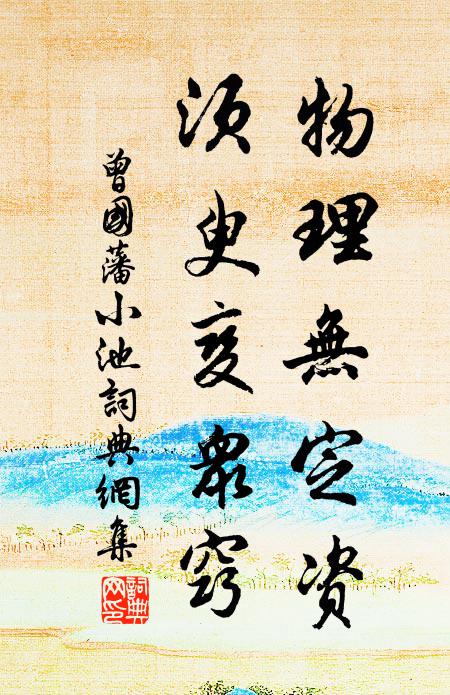 物理無定資
須臾變眾竅
曾國藩小池詞典網集
詞典網印